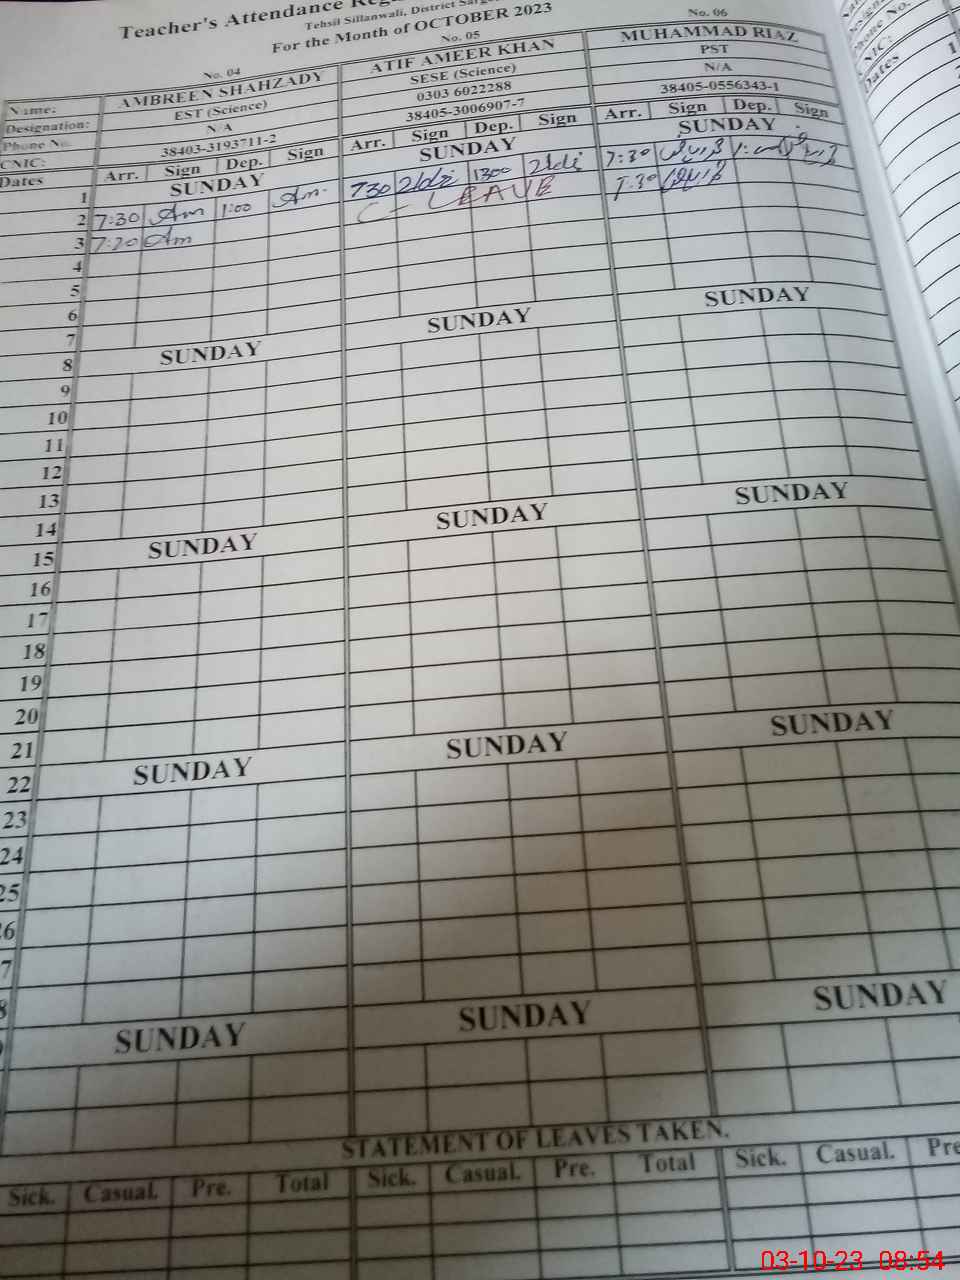 Teacher's Attendance
Tehsil Sillanwali, District
For the Month of OCTOBER 2023
No. 04 No. 05 No. 06
Name: AMBREEN SHAHZADY ATIF AMEER KHAN MUHAMMAD RIAZ
Designation: EST (Science) SESE (Science) PST
Phone No. N/A 0303 6022288 N/A
CNIC: 38403-3193711-2 38405-3006907-7 38405-0556343-1
Dates Arr. Sign Dep. Sign Arr. Sign Dep. Sign Arr. Sign Dep. Sign
1 SUNDAY SUNDAY SUNDAY
2 7:30 Am 1:00 Am 730 1300 7:30
3 7:20 Am C - LEAVE 7.30
4
5
6
7
8 SUNDAY SUNDAY SUNDAY
9
10
11
12
13
14
15 SUNDAY SUNDAY SUNDAY
16
17
18
19
20
21
22 SUNDAY SUNDAY SUNDAY
23
24
25
6
7
8
SUNDAY SUNDAY SUNDAY
STATEMENT OF LEAVES TAKEN.
Sick. Casual. Pre. Total Sick. Casual. Pre. Total Sick. Casual. Pre
Phone No.
CNIC:
Dates
1
03-10-23 08:54